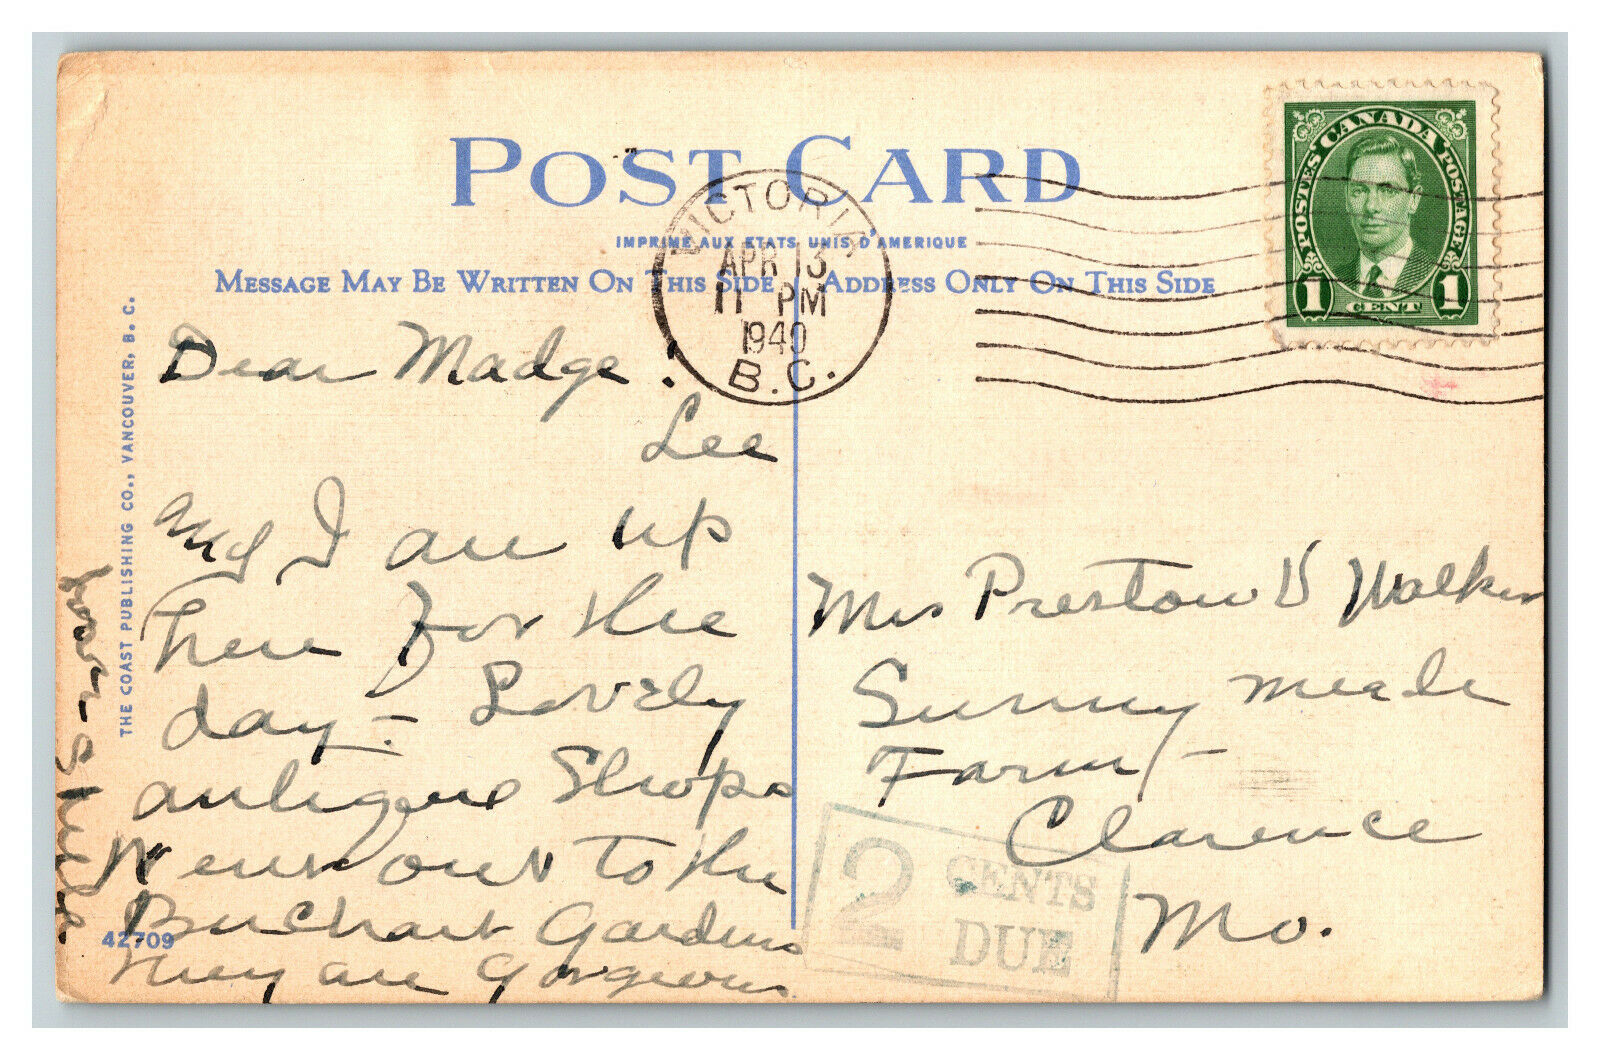 POST CARD
IMPRIMÉ AUX ETATS UNIS D'AMERIQUE
MESSAGE MAY BE WRITTEN ON THIS SIDE
ADDRESS ONLY ON THIS SIDE
VICTORIA
APR 13
11 PM
1940
B.C.
POSTES CANADA POSTAGE
1 CENT 1
Dear Madge!
Lee
and I are up
here for the
day - Lovely
antique Shops
Went out to the
Buchart Gardens
They are Gorgeous
Mrs Preston V Walker
Sunny meade
Farm -
Clarence
Mo.
2 CENTS
DUE
THE COAST PUBLISHING CO., VANCOUVER, B. C.
42709